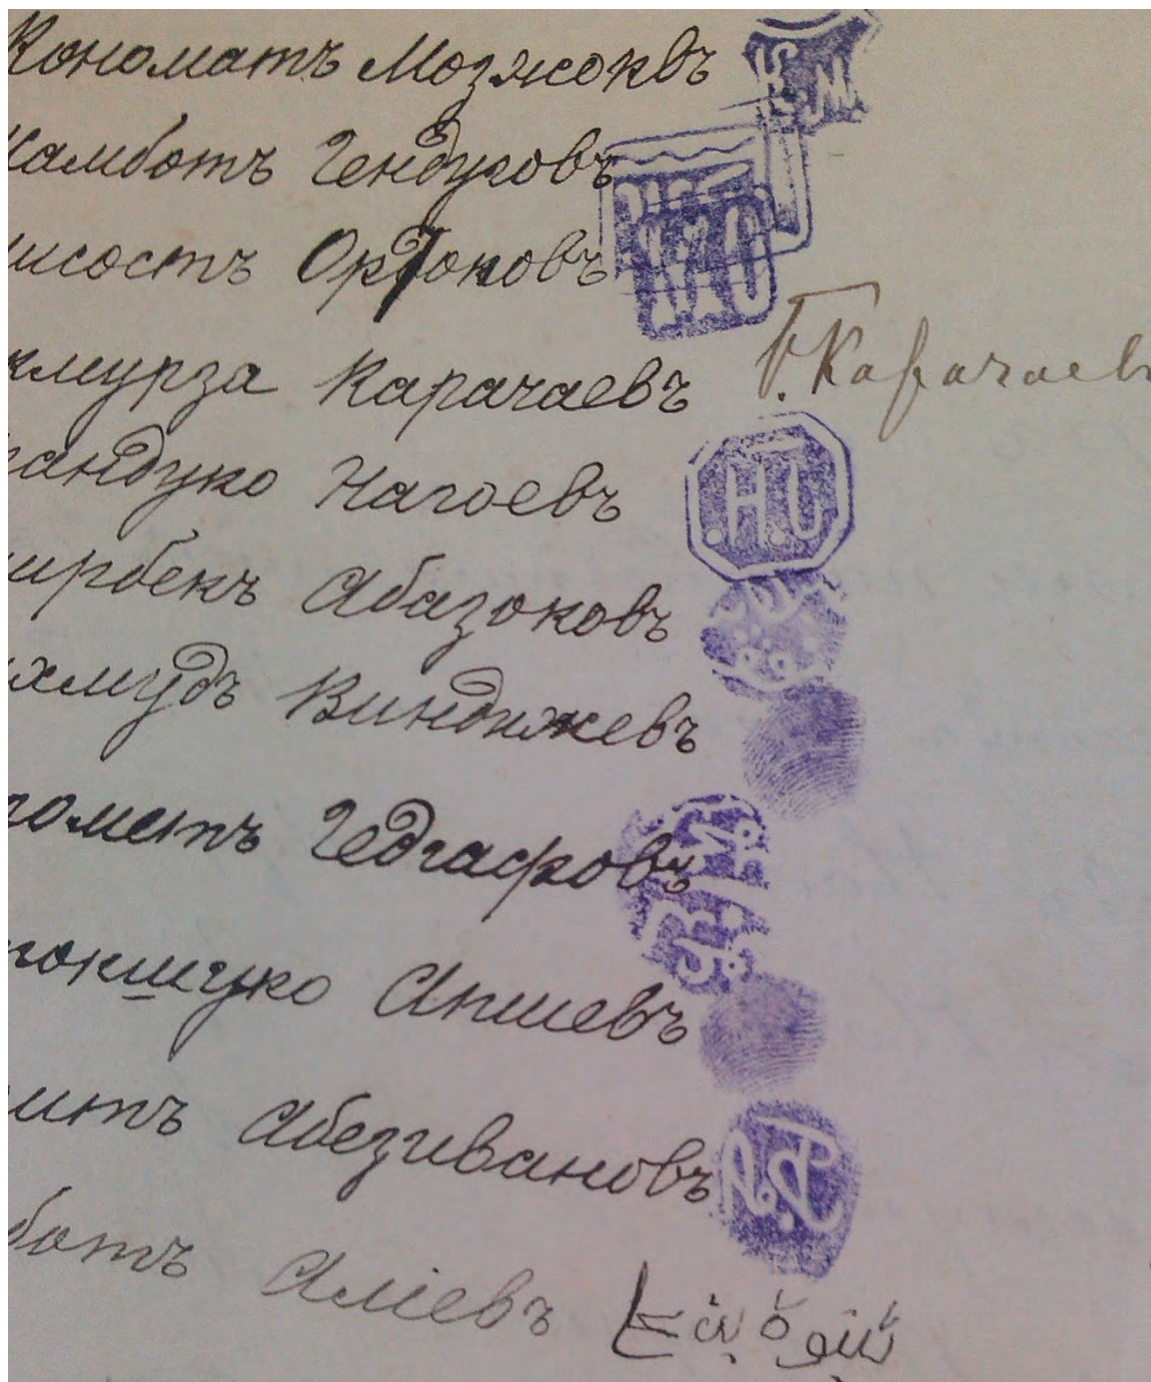 Кономатъ Мозжоквъ К. М.
Камботъ Гендуговъ
исостъ Ортоковъ
кмурза Карачаевъ Б. Карачаевъ
андуко Нагоевъ .Н.П.
ирбекъ Абазоковъ
хмудъ Виндижевъ
ометъ Гедгафовъ
окшуко Апшевъ
итъ Абезивановъ
ботъ Аліевъ